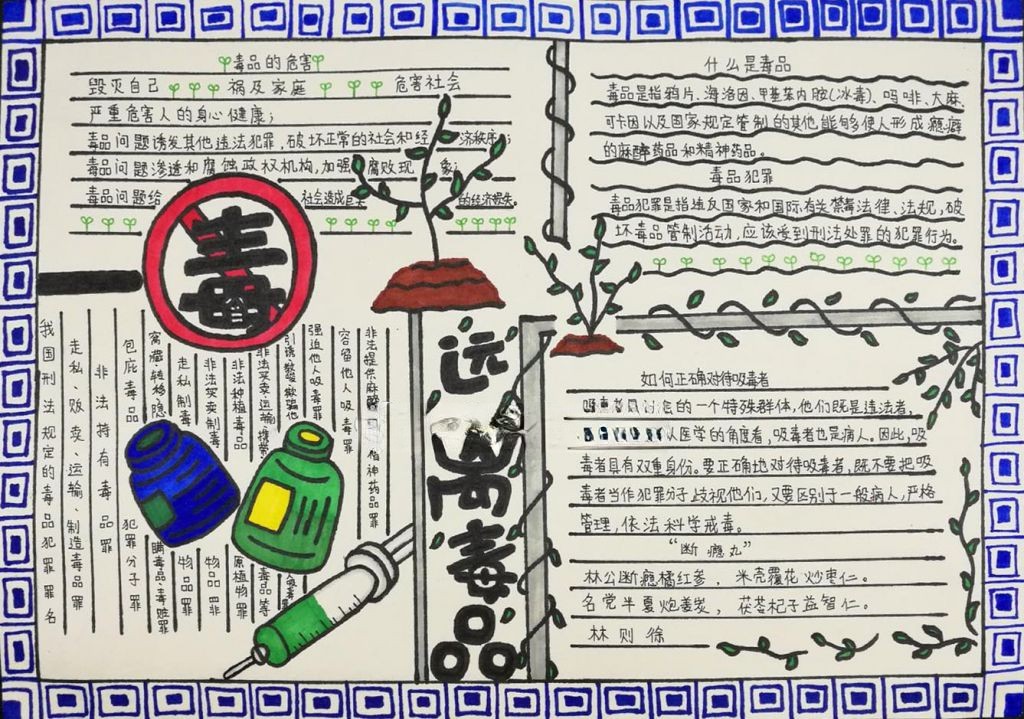 毒品的危害
毁灭自己 祸及家庭 危害社会
严重危害人的身心健康;
毒品问题诱发其他违法犯罪,破坏正常的社会和经济秩序;
毒品问题渗透和腐蚀政权机构,加强腐败现象;
毒品问题给社会造成巨大的经济损失。
毒
什么是毒品
毒品是指鸦片、海洛因、甲基苯丙胺(冰毒)、吗啡、大麻、
可卡因以及国家规定管制的其他能够使人形成瘾癖
的麻醉药品和精神药品。
毒品犯罪
毒品犯罪是指违反国家和国际有关禁毒法律、法规,破
坏毒品管制活动,应该受到刑法处罚的犯罪行为。
我国刑法规定的毒品犯罪罪名
走私、贩卖、运输、制造毒品罪
非法持有毒品罪
包庇毒品犯罪分子罪
窝藏、转移、隐瞒毒品、毒赃罪
走私制毒物品罪
非法买卖制毒物品罪
非法种植毒品原植物罪
非法买卖、运输、携带
毒品等
引诱、教唆、欺骗他
强迫他人吸毒罪
容留他人吸毒罪
非法提供麻醉
精神药品罪
远离毒品
如何正确对待吸毒者
的一个特殊群体,他们既是违法者,
从医学的角度看,吸毒者也是病人。因此,吸
毒者具有双重身份。要正确地对待吸毒者,既不要把吸
毒者当作犯罪分子歧视他们,又要区别于一般病人,严格
管理,依法科学戒毒。
“断瘾丸”
林公断瘾橘红参,米壳覆花炒枣仁。
名党半夏炮姜炭,茯苓杞子益智仁。
林则徐